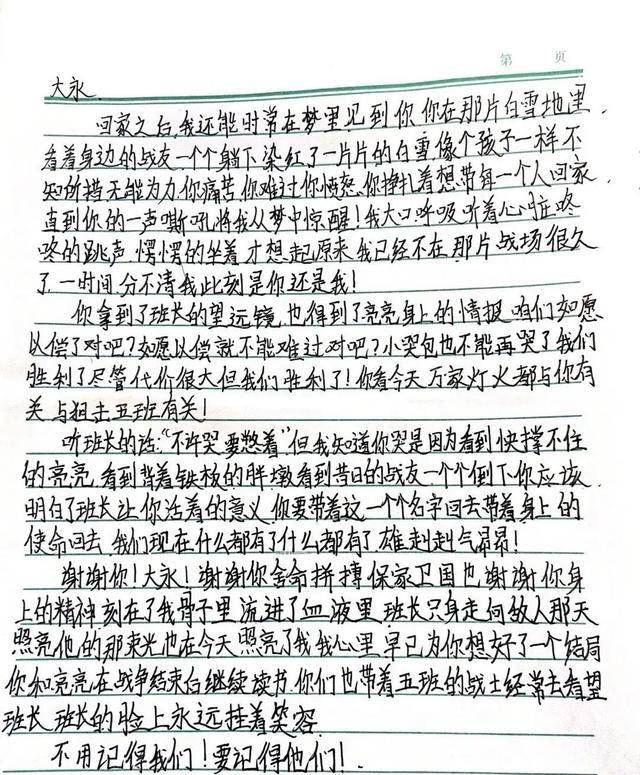 第 页
大永.
回家之后,我还能时常在梦里见到你 你在那片白雪地里
看着身边的战友一个个躺下 染红了一片片的白雪,像个孩子一样不
知所措无能为力,你痛苦,你难过你愤怒.你挣扎着想带每一个人回家
直到你的一声嘶吼将我从梦中惊醒!我大口呼吸 听着心脏咚
咚的跳声 愣愣的坐着 才想起原来 我已经不在那片战场很久
了.一时间分不清我此刻是你还是我!
你拿到了班长的望远镜,也得到了亮亮身上的情报 咱们如愿
以偿了对吧?如愿以偿就不能难过对吧?小哭包也不能再哭了我们
胜利了尽管代价很大但我们胜利了!你看今天万家灯火都与你有
关 与狙击五班有关!
听班长的话:"不许哭要憋着"但我知道你哭是因为看到快撑不住
的亮亮 看到背着铁板的胖墩看到昔日的战友一个个倒下你应该
明白了班长让你活着的意义.你要带着这一个个名字回去带着身上的
使命回去,我们现在什么都有了什么都有了.雄赳赳气昂昂!
谢谢你!大永!谢谢你舍命拼搏保家卫国也谢谢你身
上的精神刻在了我骨子里流进了血液里.班长只身走向敌人那天
照亮他的那束光也在今天照亮了我 我心里早已为你想好了一个结局
你和亮亮在战争结束后继续读书.你们也带着五班的战士经常去看望
班长 班长的脸上永远挂着笑容.
不用记得我们!要记得他们!